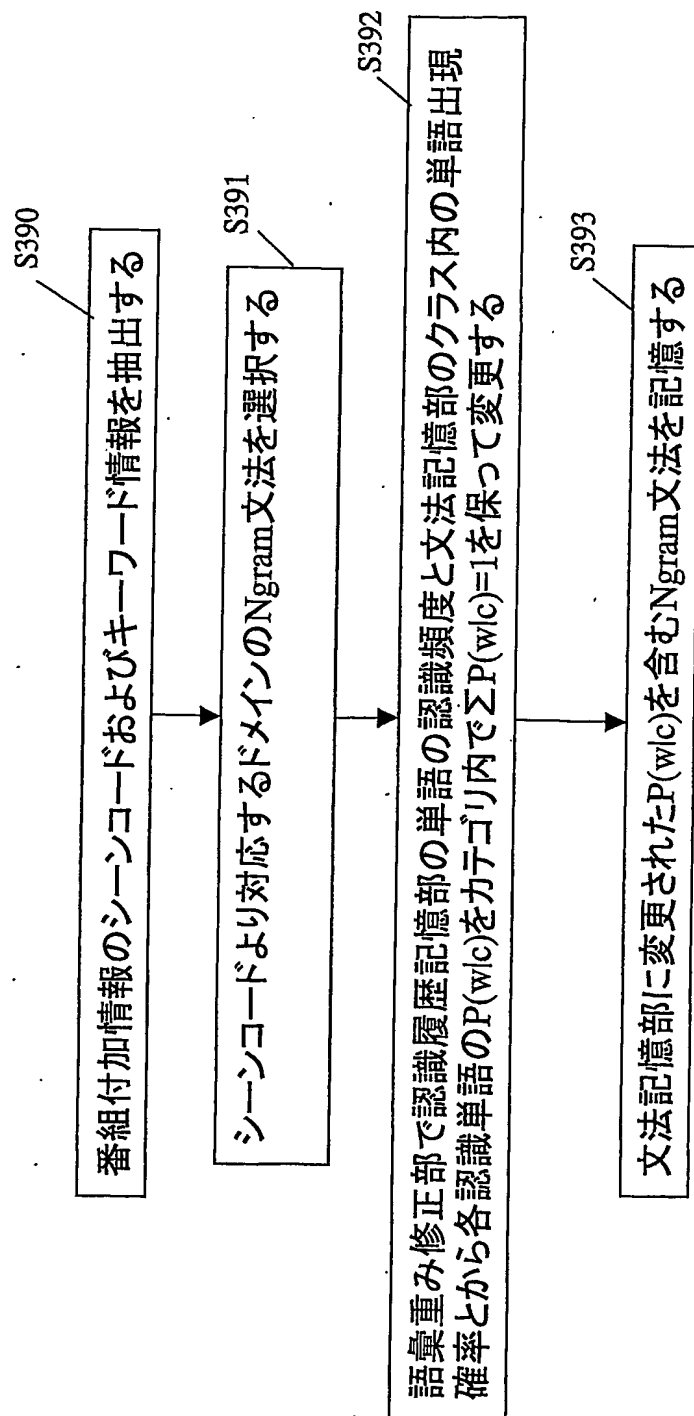 S390
番組付加情報のシーンコードおよびキーワード情報を抽出する
S391
シーンコードより対応するドメインのNgram文法を選択する
S392
語彙重み修正部で認識履歴記憶部の単語の認識頻度と文法記憶部のクラス内の単語出現
確率とから各認識単語のP(w|c)をカテゴリ内で∑P(w|c)=1を保って変更する
S393
文法記憶部に変更されたP(w|c)を含むNgram文法を記憶する